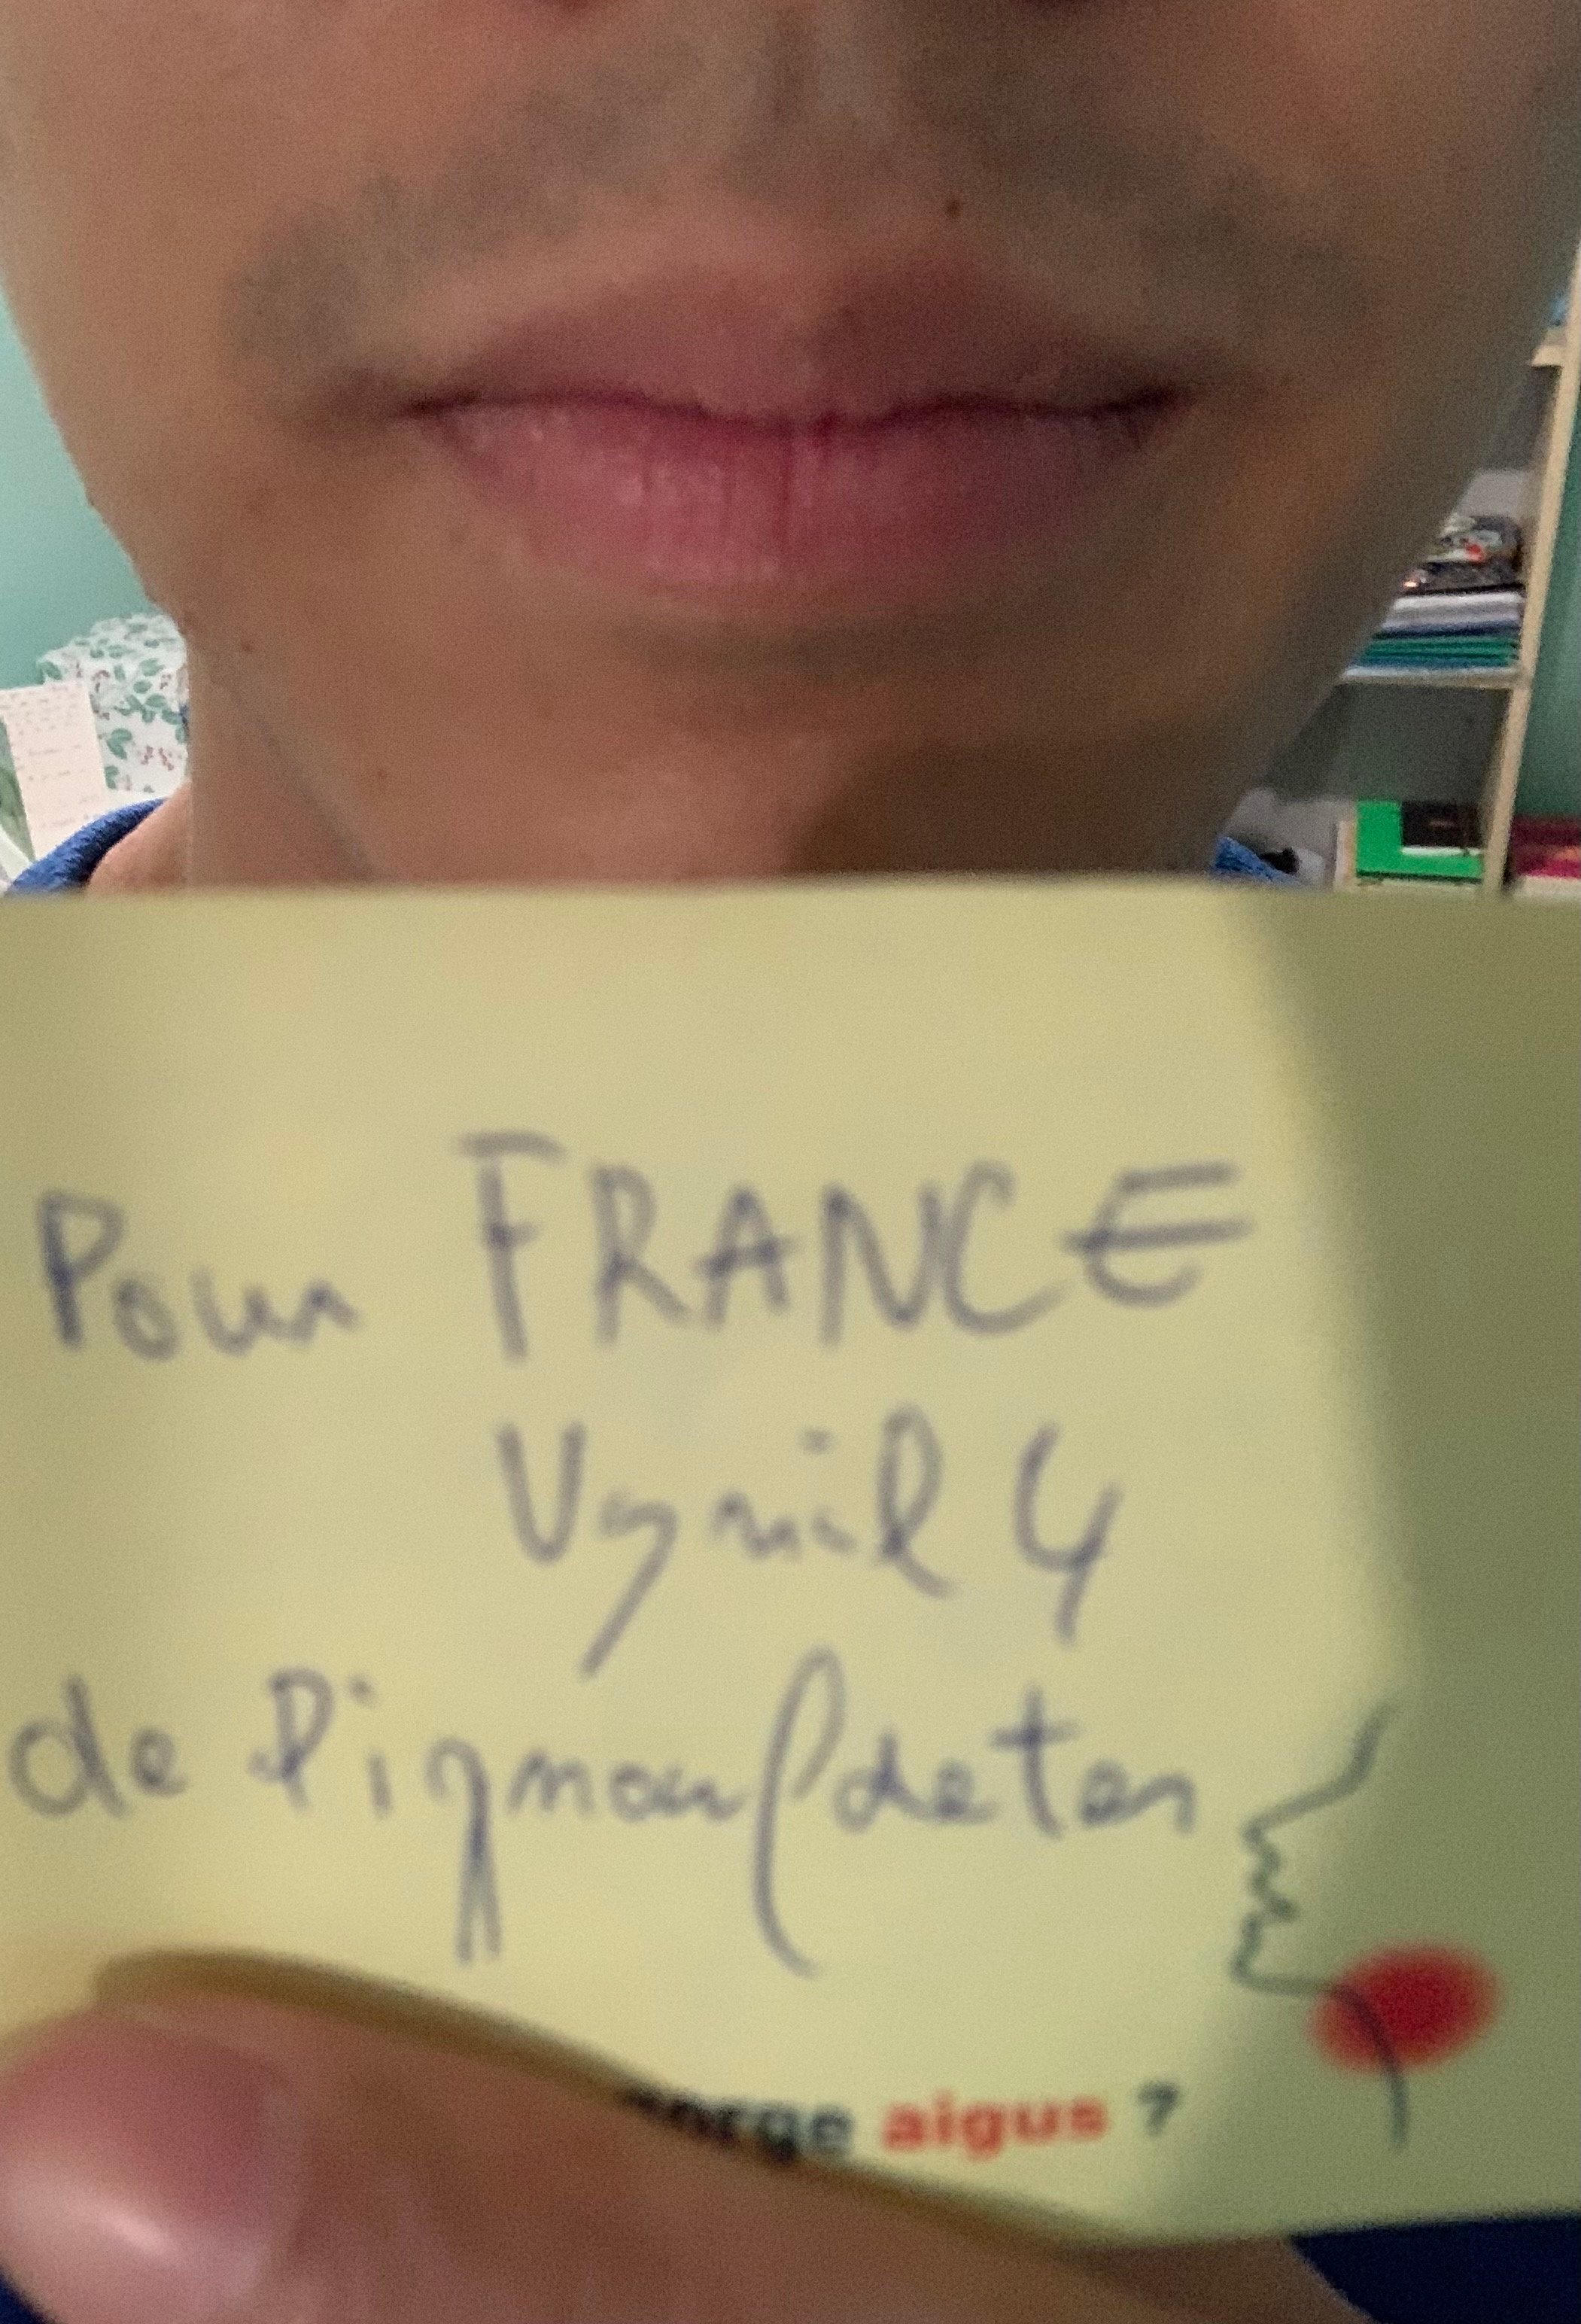 Pour FRANCE
Vynil 4
de Pignouf deter
gorge aigus ?